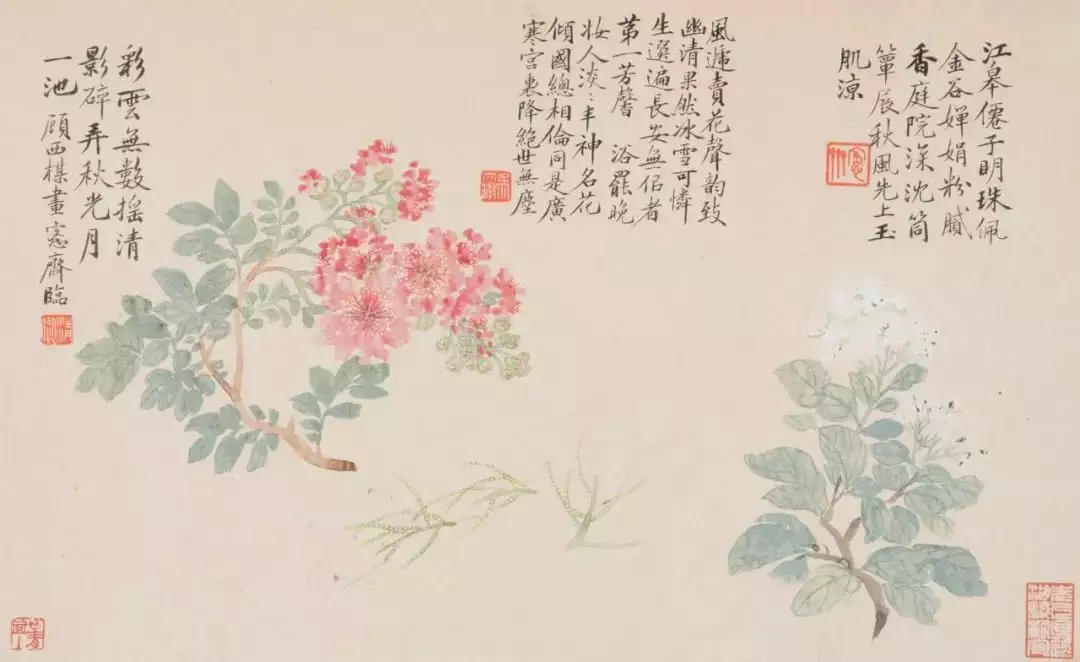 江皋僊子明珠佩
金谷嬋娟粉膩
香庭院深沈筒
簟展秋風先上玉
肌涼
風遞賣花聲韵致
幽清果然冰雪可憐
生選遍長安無佀者
第一芳馨 浴罷晚
妝人淡〻丰神名花
傾國總相倫同是廣
寒宮裏降絕世無塵
彩雲無數搖清
影碎弄秋光月
一池 顧西楳畫 愙齋臨